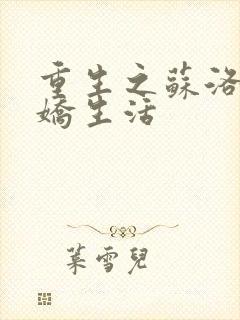 重生之蘇洛
嬌生活
葉雪兒